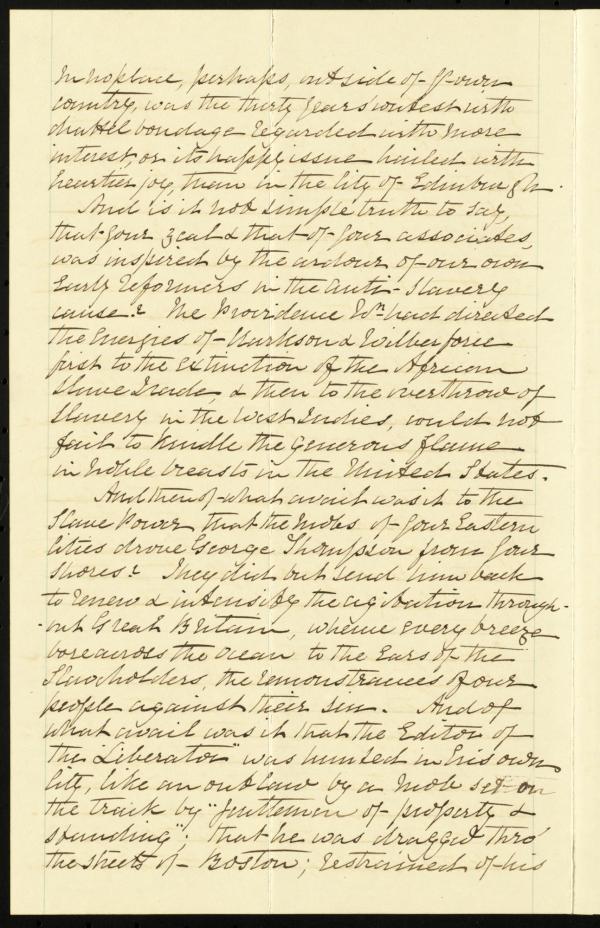 In no place, perhaps, outside of yr own
country, was the thirty years contest with
chattel bondage regarded with more
interest, or its happy issue hailed with
heartier joy, than in the City of Edinburgh.
And is it not simple truth to say,
that your zeal & that of your associates,
was inspired by the ardour of our own
Early Reformers in the Anti-Slavery
cause? The Providence Wh had directed
the Energies of Clarkson & Wilberforce
first to the Extinction of the African
Slave Trade, & then to the overthrow of
Slavery in the West Indies, could not
fail to kindle the generous flame
in Noble breasts in the United States.
And then of what avail was it to the
Slave Power that the Mobs of your Eastern
Cities drove George Thompson from your
shores? They did but send him back
to renew & intensify the agitation through-
-out Great Britain, whence every breeze
bore across the ocean to the Ears of the
Slaveholders, the remonstrances of our
people against their sin. And of
what avail was it that the Editor of
the "Liberator" was hunted in his own
City, like an outlaw by a Mob set on
the track by "gentlemen of property &
standing"; that he was dragged thro'
the streets of Boston; restrained of his